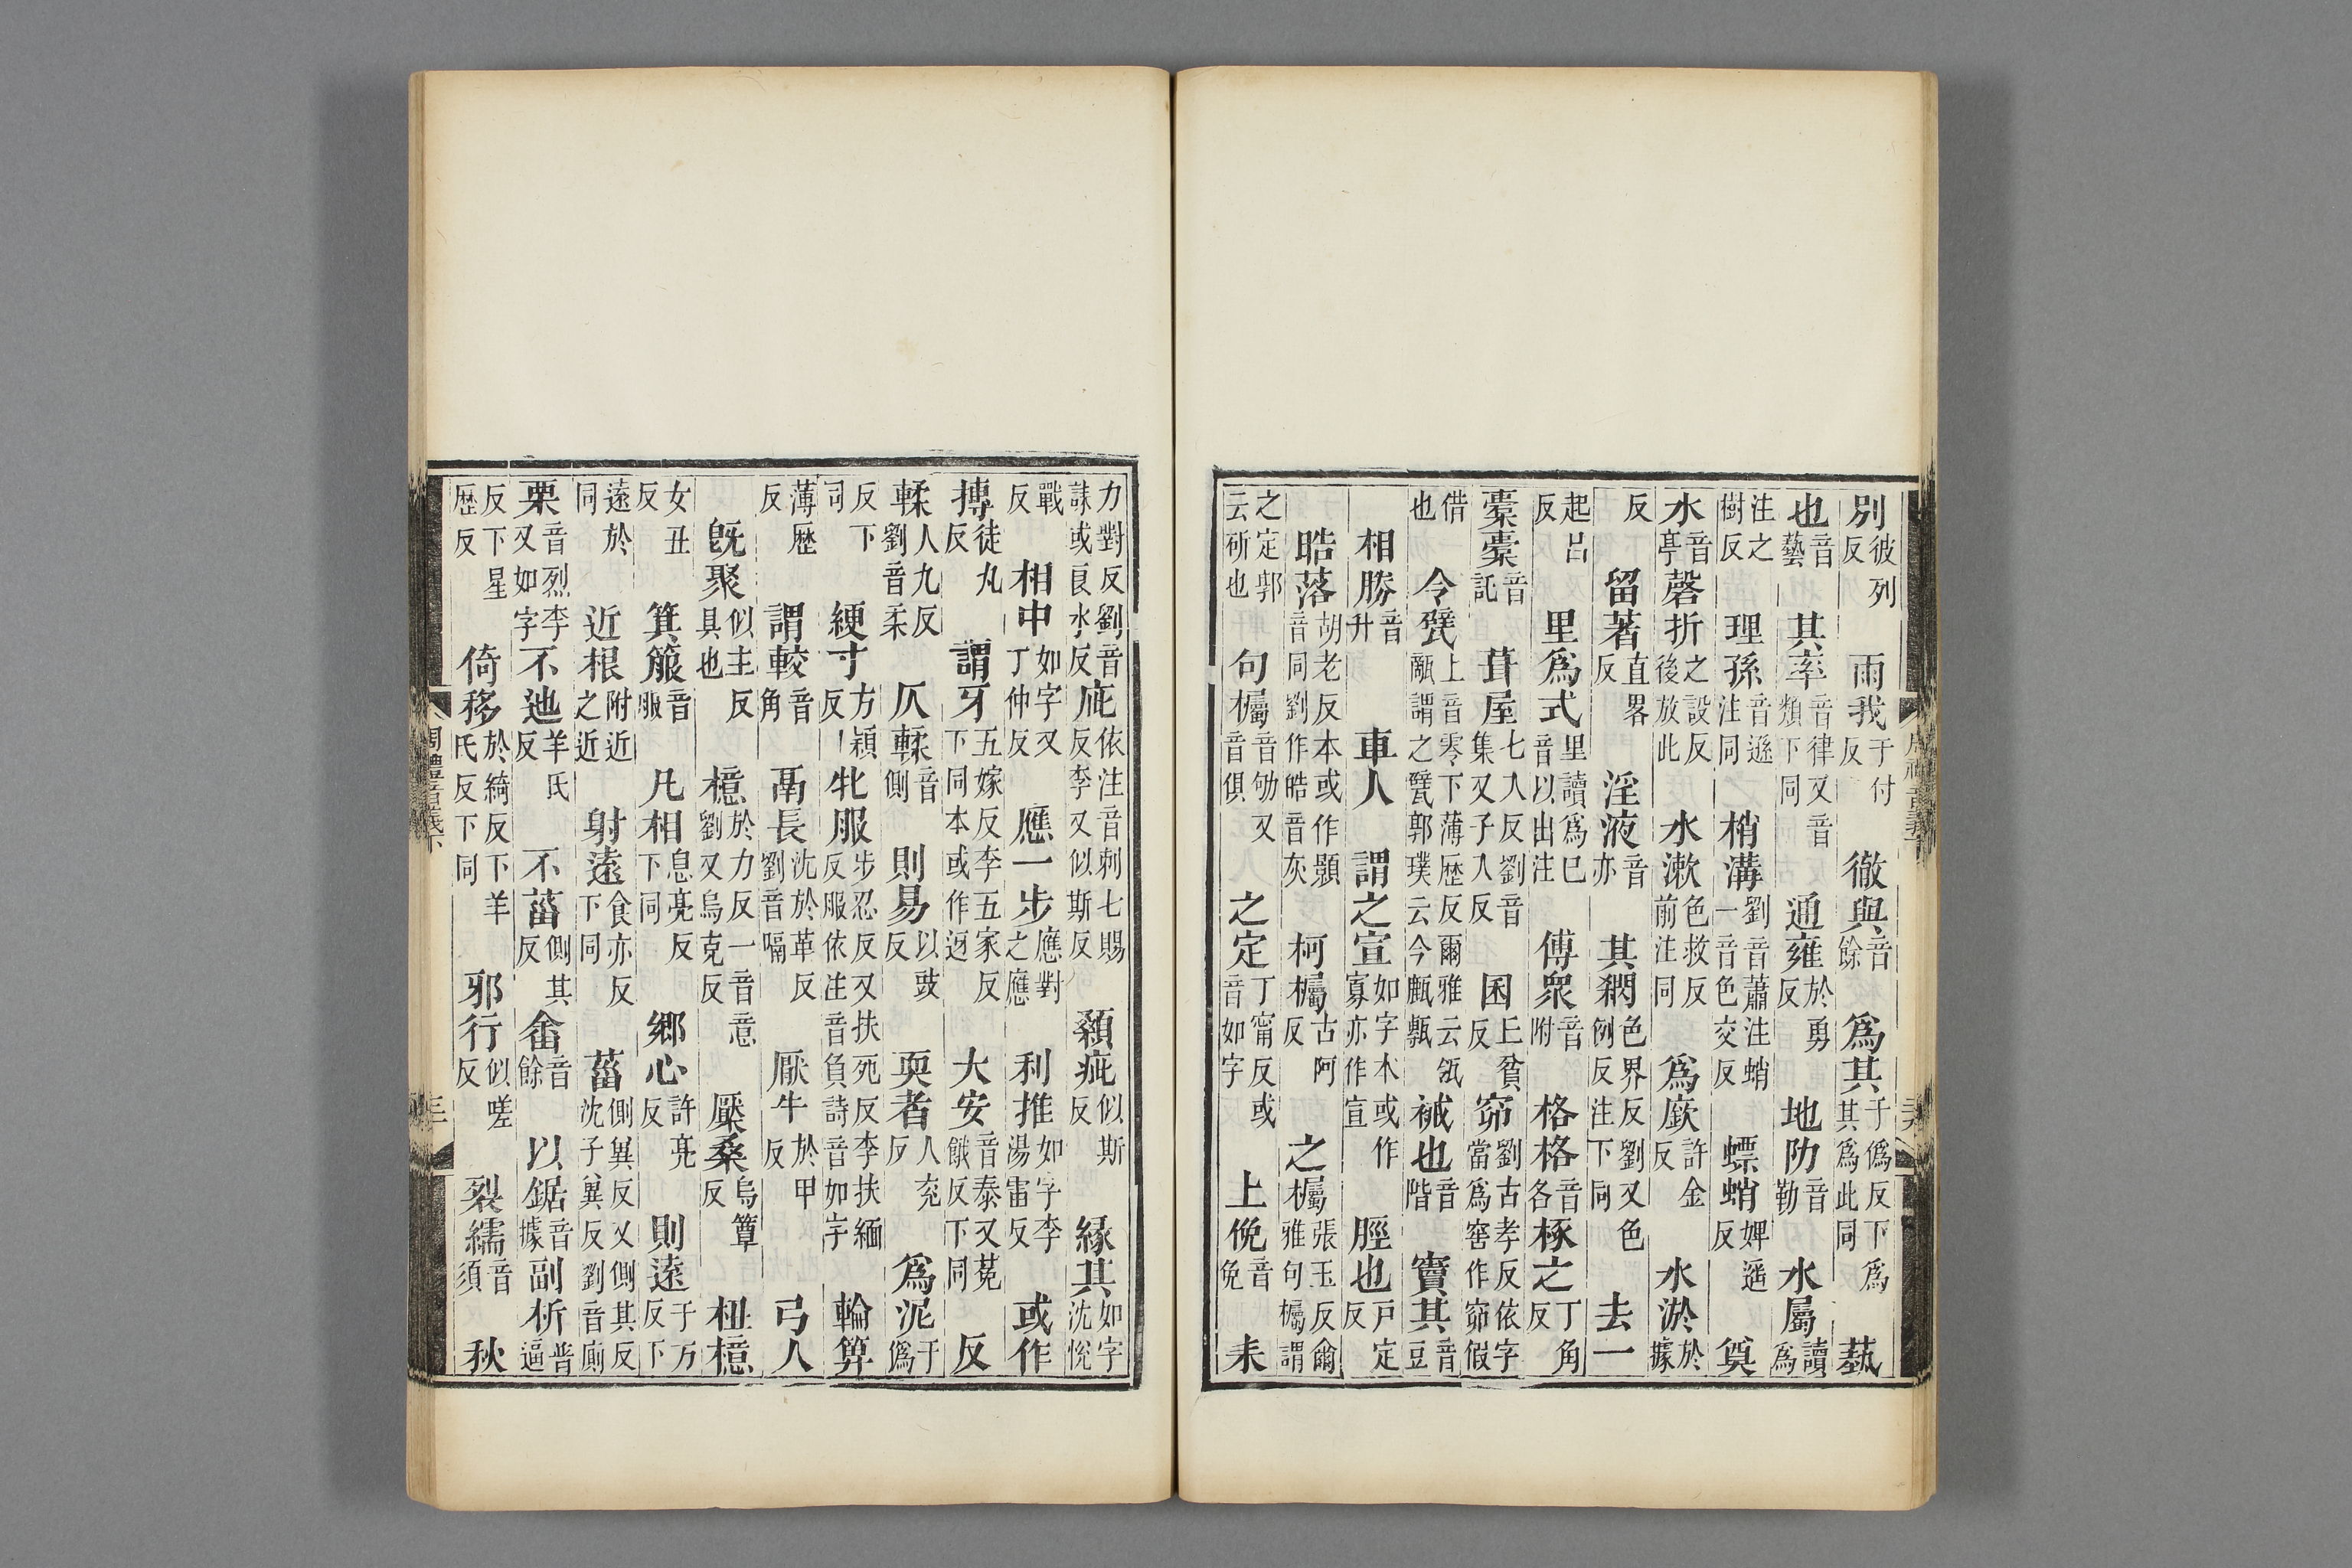 別彼列反 雨我于付反 徹與音餘 爲其子僞反下爲其爲此同 蓺
也音藝 其率音律又音類下同 通雍於勇反 地防音勒 水屬讀爲
注之樹反 理孫音遜注同 梢溝劉音蕭注蛸一音色交反 螵蛸婢遥反 奠
水音亭 磬折之設反後放此 水漱色救反前注同 爲廞許金反 水淤於據
反 留著直畧反 淫液音亦 其䊝色界反劉又色例反注下同 去一
起呂反 里爲式里讀爲巳音以出注 傅衆音附 格格音各 椓之丁角反
橐橐音託 葺屋七入反劉音集又子入反 囷丘貧反 窌劉古孝反依字當爲窖作窌假
借也 令甓上音零下薄歷反爾雅云瓴甋謂之甓郭璞云今甗甎 裓也音階 竇其音豆
相勝音升 車人 謂之宣如字本或作寡亦作宣 脛也戸定反
晧落胡老反本或作顥音同劉作皓音灰 柯欘古阿反 之欘張玉反爾雅句欘謂
之定郭云斫也 句欘音劬又音俱 之定丁甯反或音如字 上俛音免 耒
力對反劉音誄或良水反 庛依注音刺七賜反李又似斯反 顙疵似斯反 緣其如字沈悅
戰反 相中如字又丁仲反 應一步應對之應 利推如字李湯雷反 或作
摶徒丸反 謂牙五嫁反李五家反下同本或作迓 大安音泰又菟餓反下同 反
輮人九反劉音柔 仄輮音側 則易以豉反 耎者人兖反 爲泥于僞
反下同 綆寸方穎反 牝服步忍反又扶死反李扶緬反服依注音負詩音如字 輪箄
薄歷反 謂較音角 鬲長沈於革反劉音嗝 厭牛於甲反 弓人
旣聚似主反具也 檍於力反一音意劉又烏克反 檿桑烏簟反 杻檍
女丑反 箕箙音服 凡相息亮反下同 鄉心許亮反 則遠于万反下
遠於同 近根附近之近 射遠食亦反下同 菑側異反又側其反沈子異反劉音廁
栗音烈李又如字 不迆羊氏反 不菑側其反 畬音餘 以鋸音據 副析普逼
反下星歷反 倚移於綺反下羊氏反下同 邪行似嗟反 裂繻音須 秋